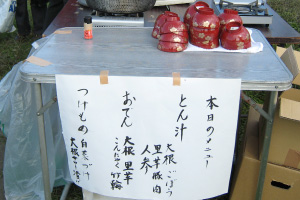 本日のメニュー
とん汁
大根 ごぼう
里芋 豚肉
人参
おでん
大根 里芋
こんにゃく 竹輪
つけもの
白菜づけ